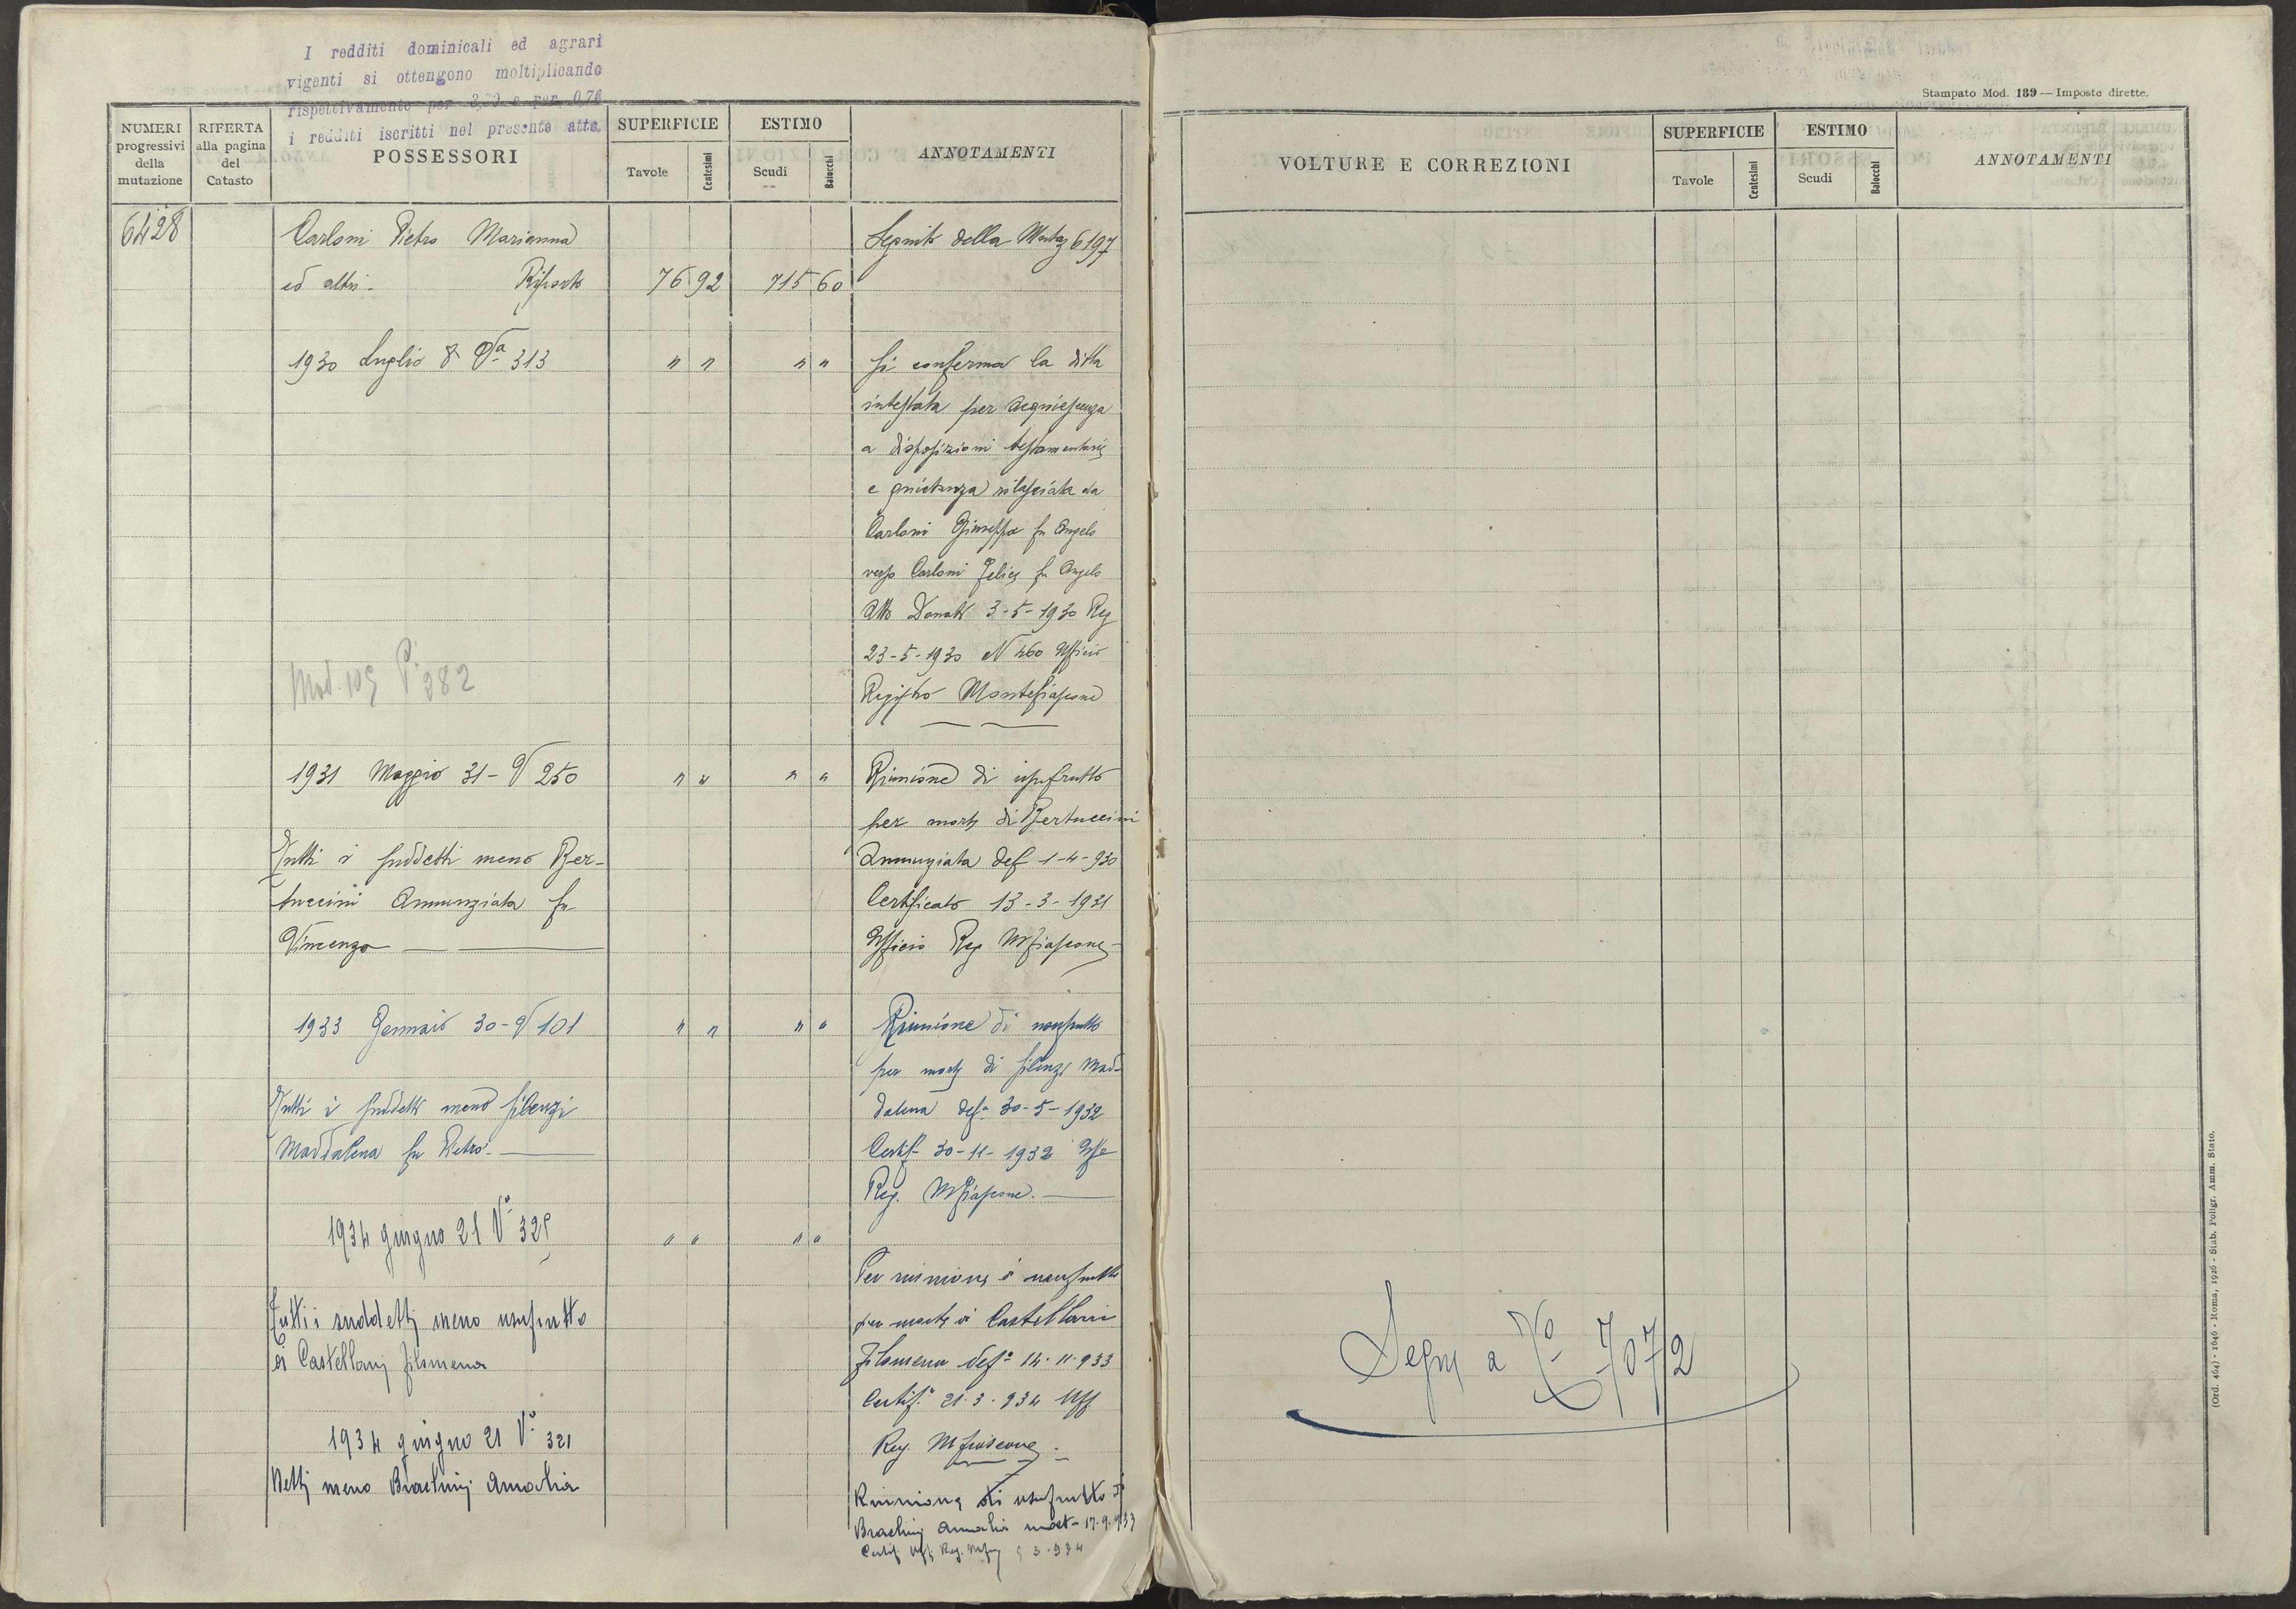 I redditi dominicali ed agrari
vigenti si ottengono moltiplicando
rispettivamente per e per 0,76
i redditi iscritti nel presente atto
NUMERI progressivi della mutazione
RIFERTA alla pagina del Catasto
POSSESSORI
SUPERFICIE
Tavole
Centesimi
ESTIMO
Scudi
Baiocchi
ANNOTAMENTI
6428
Carloni Pietro Marianna
ed altri - Riporto 76 92 715 60
Seguito della 6197
1930 Luglio 8 Va 313 " " " "
Si conferma la ditta
intestata per acquiescenza
a disposizioni testamentarie
e quietanza rilasciata da
Carloni Giuseppa fu Angelo
verso Carloni Felice fu Angelo
Atto Donati 3-5-1930 Reg
23-5-1930 N 460 Ufficio
Registro Montefiascone
Mod. 109 282
1931 Maggio 31 - V 250 " " " "
Tutti i suddetti meno Ber-
tuccini Annunziata fu
Vincenzo
Riunione di usufrutto
per morte di Bertuccini
Annunziata def 1-4-930
Certificato 13-3-1931
Ufficio Reg Mfiascone
1933 Gennaio 30 - V 101 " " " "
Tutti i suddetti meno Silenzi
Maddalena fu Pietro.
Riunione di usufrutto
per morte di Silenzi Mad-
dalena def. 30-5-1932
Certif. 30-11-1932 Uffo
Reg. Mfiascone.
1934 giugno 21 Vo " " " "
Tutti i suddetti meno usufrutto
di Castellani Filomena
Per riunione di usufrutto
per morte di Castellani
Filomena defa 14.11.933
Certif. 21.3.934 Uff
Reg. Mfiascone.
1934 giugno 21 Vo 321
Detti meno Amalia
Riunione di usufrutto di
Amalia 17.9.933
Certif. Uff. Reg. 3.934
Stampato Mod. 139 — Imposte dirette.
VOLTURE E CORREZIONI
SUPERFICIE
Tavole
Centesimi
ESTIMO
Scudi
Baiocchi
ANNOTAMENTI
Segue a No 7072
(Ord. 464) - 1646 - Roma, 1926 - Stab. Poligr. Amm. Stato.